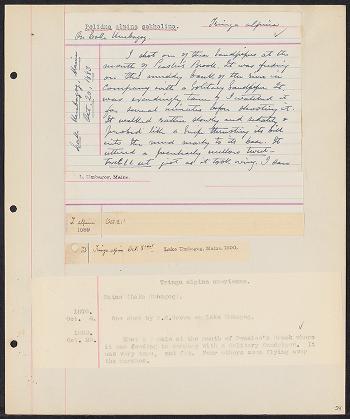 Pelidna alpina sakhalina. Tringa alpina
On Lake Umbagog.
Lake Umbagog, Maine
Oct. 20, 1883
I shot one of these Sandpipers at the
mouth of Brook. It was feeding
on the muddy bank of the river in
company with a Solitary Sandpiper. It
was exceedingly tame & I watched it
for several minutes before shooting it.
It walked rather slowly and
probed like a Snipe thrusting its bill
into the mud nearly to its base. It
uttered a peculiarly mellow
just as it took wing. I
L. Umbagog, Maine.
T. alpina Oct. 2
1889
Tringa alpina Oct. Lake Umbagog, Maine. 1890.
Tringa alpina americana.
Maine (Lake Umbagog).
Oct. 4. One shot by on Lake Umbagog.
1883.
Oct. 20. Shot a female at the mouth of Brook where
it was feeding in company with a Solitary Sandpiper. It
was very tame, and fat. Four others seen flying over
the marshes.